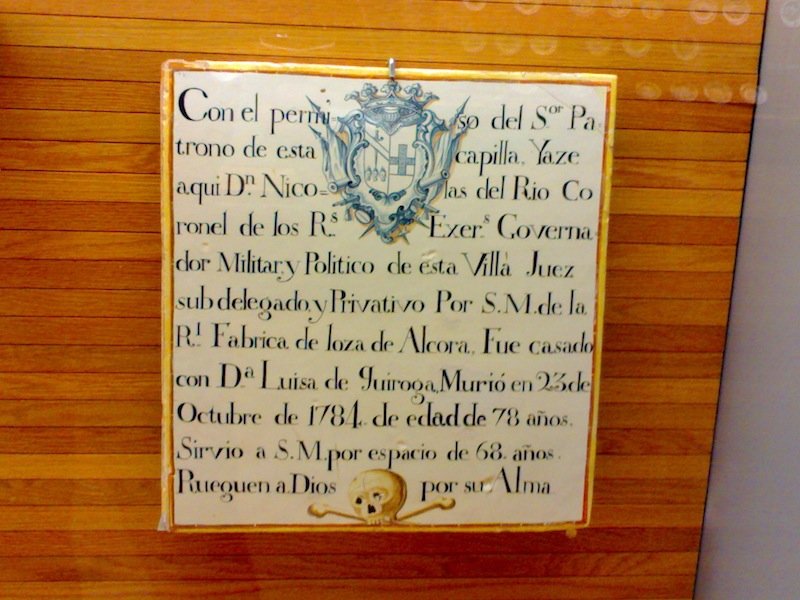 Con el permiso del S.or Pa-
trono de esta capilla, Yaze
aqui D.n Nico=las del Rio Co
ronel de los R.s Exer.s Governa
dor Militar, y Politico de esta Villa Juez
subdelegado, y Privativo Por S.M. de la
R.l Fabrica de loza de Alcora, Fue casado
con D.a Luisa de Quiroga, Murió en 23 de
Octubre de 1784, de edad de 78 años,
Sirvio a S.M. por espacio de 68 años.
Rueguen a Dios por su Alma